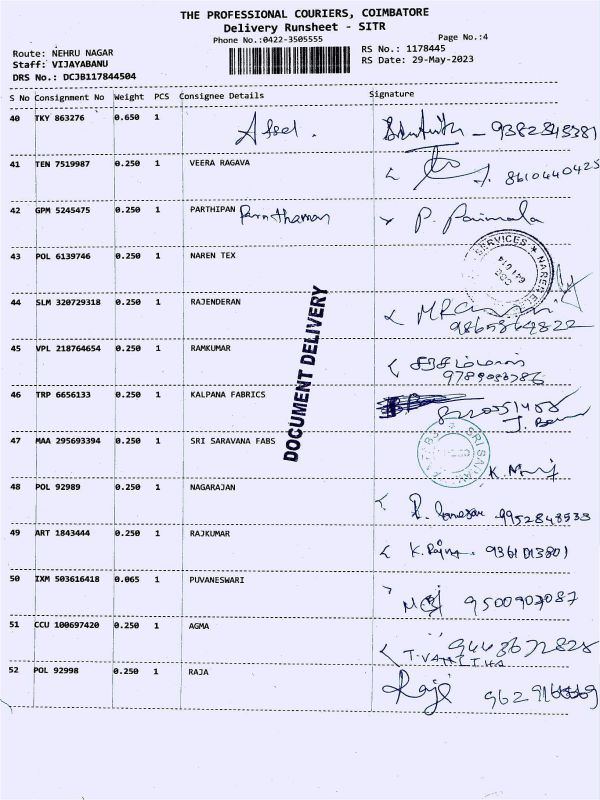 THE PROFESSIONAL COURIERS, COIMBATORE
Delivery Runsheet - SITR
Phone No.:0422-3505555 Page No.:4
Route: NEHRU NAGAR RS No.: 1178445
Staff: VIJAYABANU RS Date: 29-May-2023
DRS No.: DCJB117844504
S No Consignment No Weight PCS Consignee Details Signature
40 TKY 863276 0.650 1 9382845381
41 TEN 7519987 0.250 1 VEERA RAGAVA 8610440425
42 GPM 5245475 0.250 1 PARTHIPAN P. Parimala
43 POL 6139746 0.250 1 NAREN TEX
SERVICES ★ NAREN
CBE
641 014
44 SLM 320729318 0.250 1 RAJENDERAN
9865864822
DOCUMENT DELIVERY
45 VPL 218764654 0.250 1 RAMKUMAR
46 TRP 6656133 0.250 1 KALPANA FABRICS
47 MAA 295693394 0.250 1 SRI SARAVANA FABS
48 POL 92989 0.250 1 NAGARAJAN
9952848533
49 ART 1843444 0.250 1 RAJKUMAR 9361013801
50 IXM 503616418 0.065 1 PUVANESWARI
9500907087
51 CCU 100697420 0.250 1 AGMA 9443672828
52 POL 92998 0.250 1 RAJA